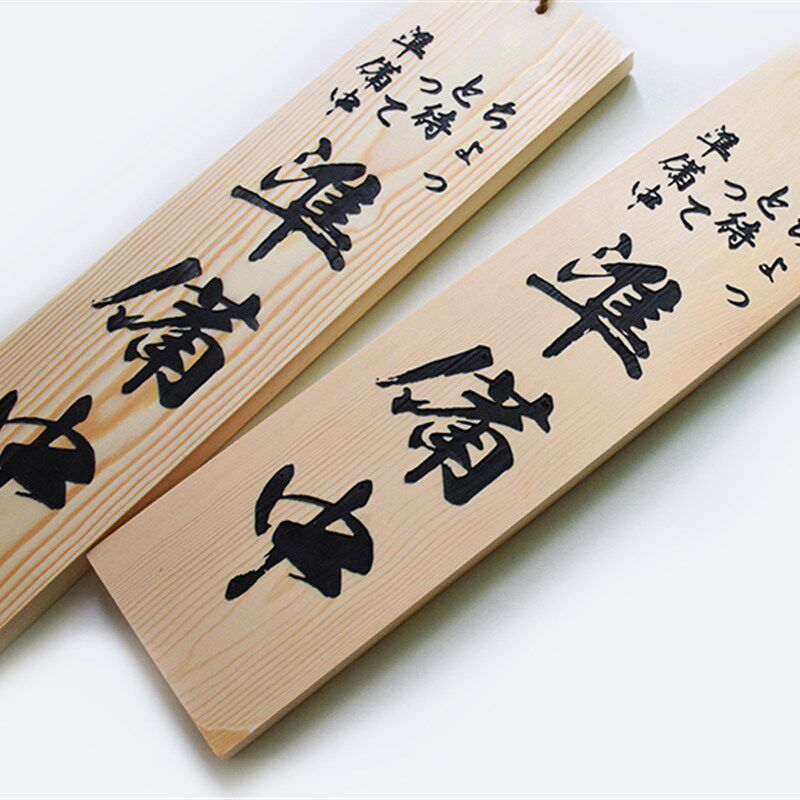 ちょっ
と待て
って
準備中
準備中
ちょっ
と待
って
準備中
準備中